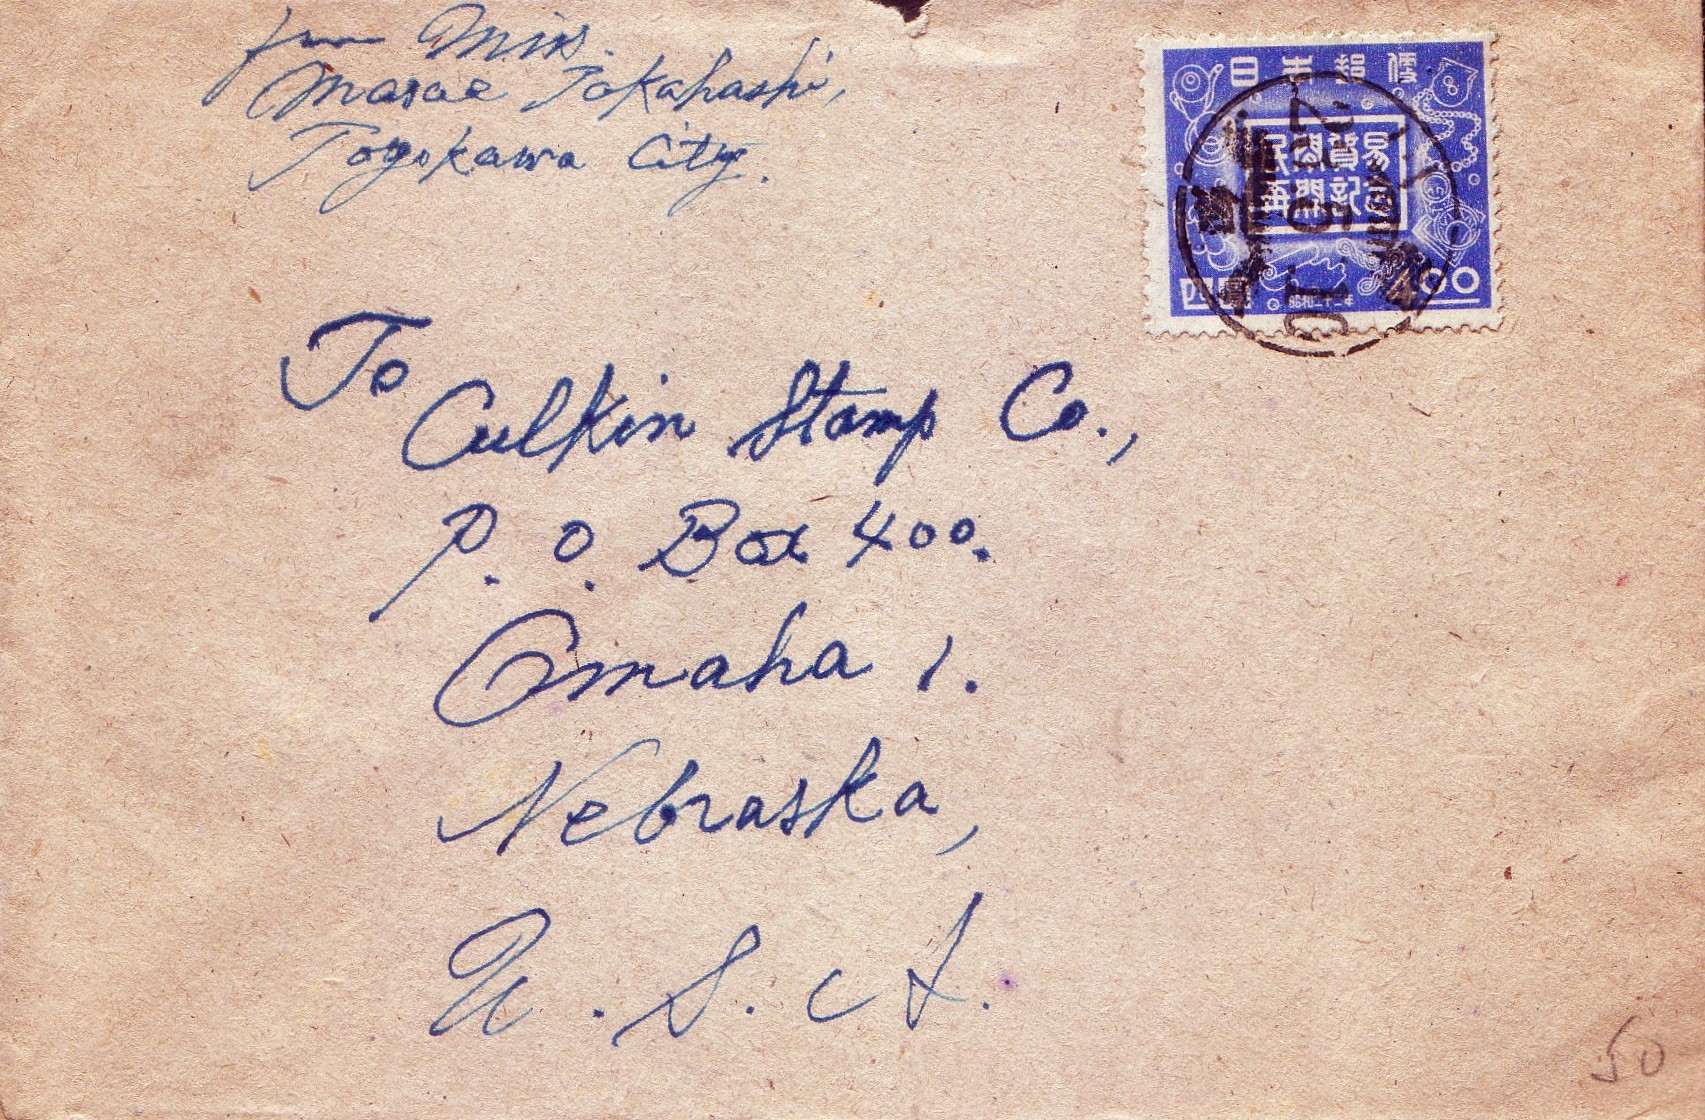 from Mrs.
Masae Takahashi,
Toyokawa City.
日本郵便
民間貿易
再開記念
四圓
4.00
昭和二十二年
To
Culkin Stamp Co.,
P. O. Box 400.
Omaha 1.
Nebraska,
U. S. A.
50